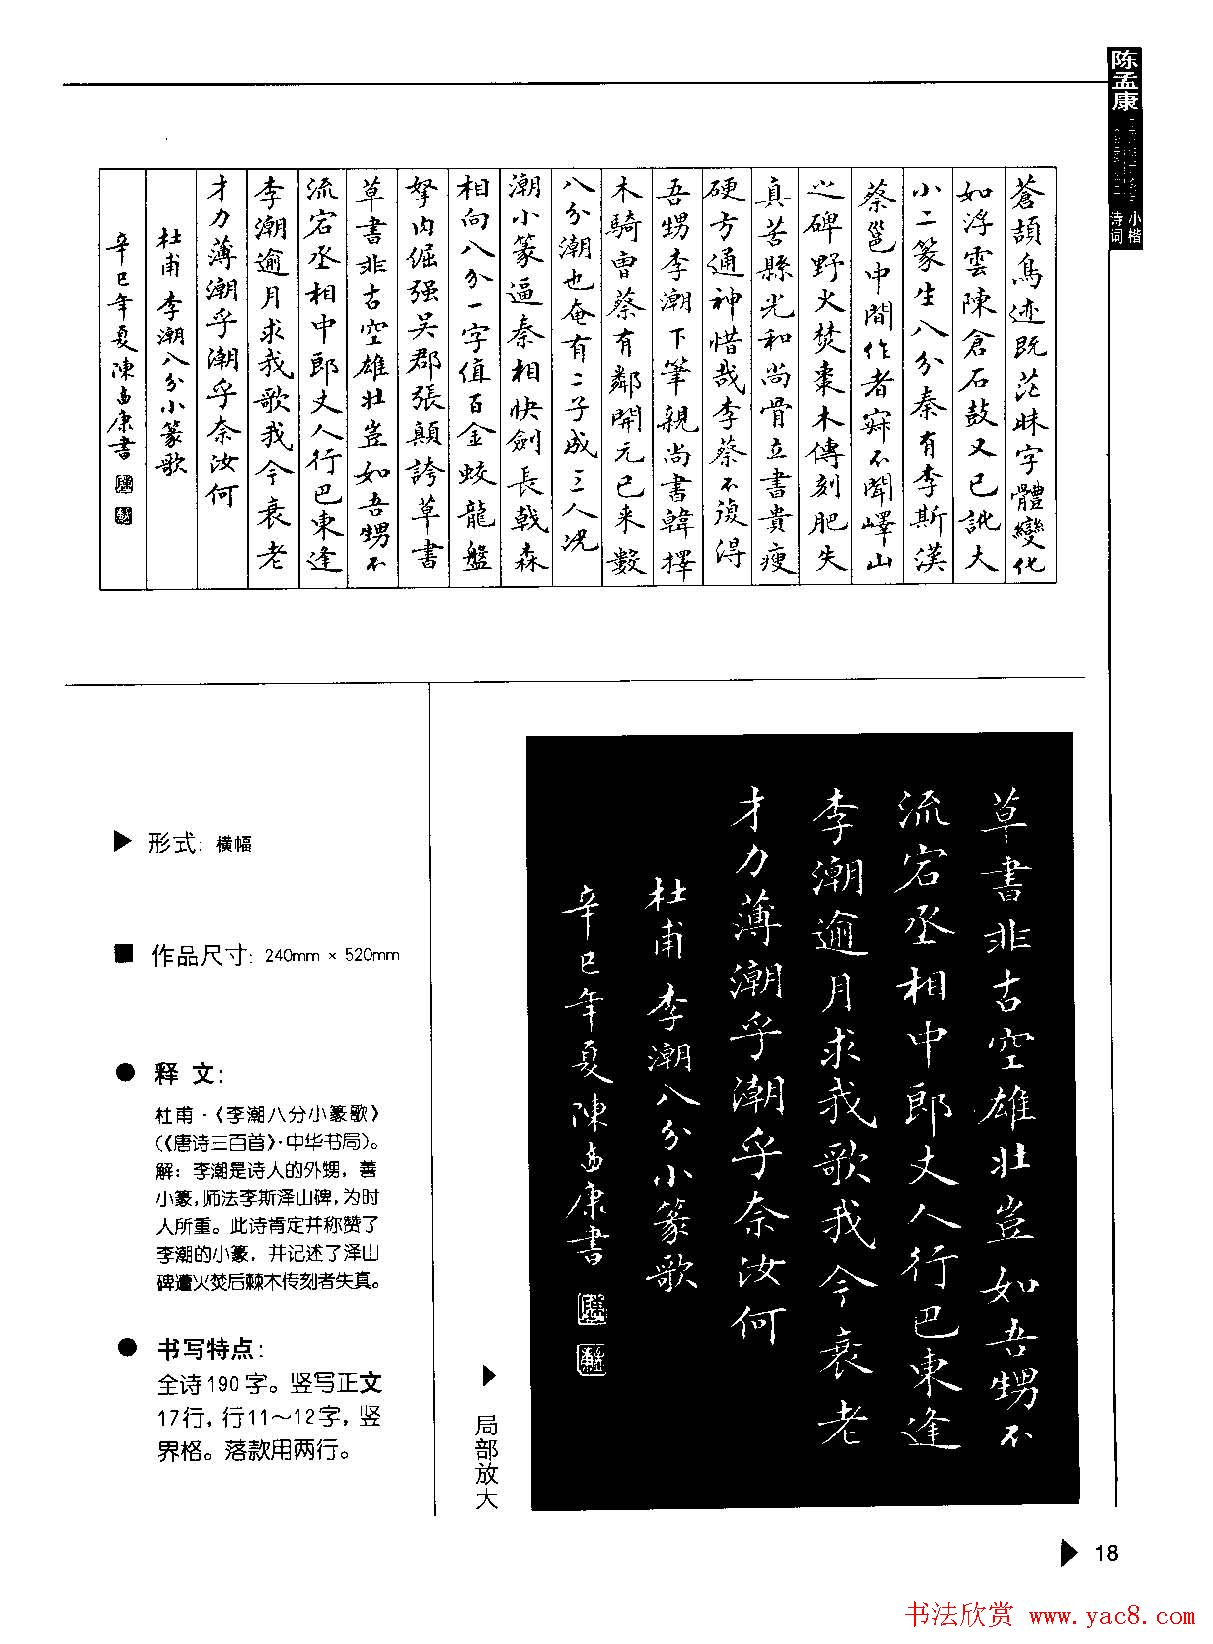 陈孟康
诗词
小楷
蒼頡鳥迹既茫昧字體變化
如浮雲陳倉石鼓又已訛大
小二篆生八分秦有李斯漢
蔡邕中間作者寂不聞嶧山
之碑野火焚棗木傳刻肥失
真苦縣光和尚骨立書貴瘦
硬方通神惜哉李蔡不復得
吾甥李潮下筆親尚書韓擇
木騎曹蔡有鄰開元已来數
八分潮也奄有二子成三人况
潮小篆逼秦相快劍長戟森
相向八分一字值百金蛟龍盤
拏肉倔强吴郡張顛誇草書
草書非古空雄壮豈如吾甥不
流宕丞相中郎丈人行巴東逢
李潮逾月求我歌我今衰老
才力薄潮乎潮乎奈汝何
杜甫 李潮八分小篆歌
辛巳年夏陳孟康書
▶ 形式: 横幅
■ 作品尺寸: 240mm × 520mm
● 释 文:
杜甫·《李潮八分小篆歌》
(《唐诗三百首》·中华书局)。
解: 李潮是诗人的外甥, 善
小篆, 师法李斯泽山碑, 为时
人所重。此诗肯定并称赞了
李潮的小篆, 并记述了泽山
碑遭火焚后棘木传刻者失真。
● 书写特点:
全诗190字。竖写正文
17行, 行11～12字, 竖
界格。落款用两行。
▶ 局部放大
草書非古空雄壮豈如吾甥不
流宕丞相中郎丈人行巴東逢
李潮逾月求我歌我今衰老
才力薄潮乎潮乎奈汝何
杜甫 李潮八分小篆歌
辛巳年夏陳孟康書
▶ 18
书法欣赏 www.yac8.com